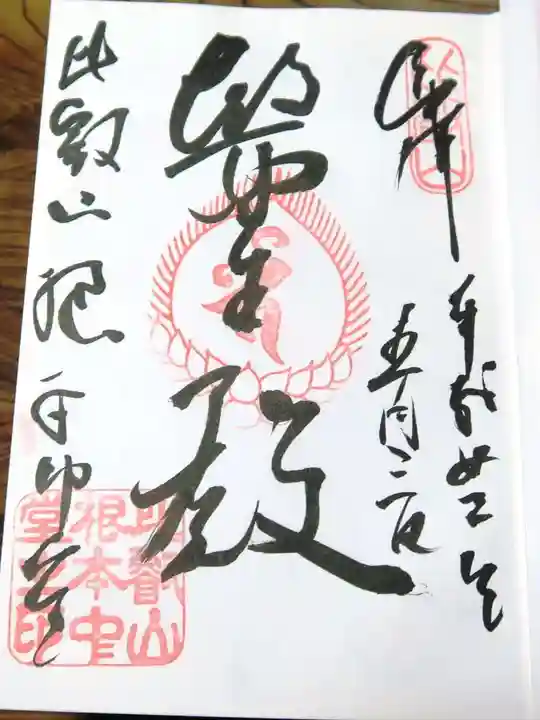 奉拝
平成廿
五月二日
醫王殿
比叡山 根本中堂
比叡山
根本中
堂之印